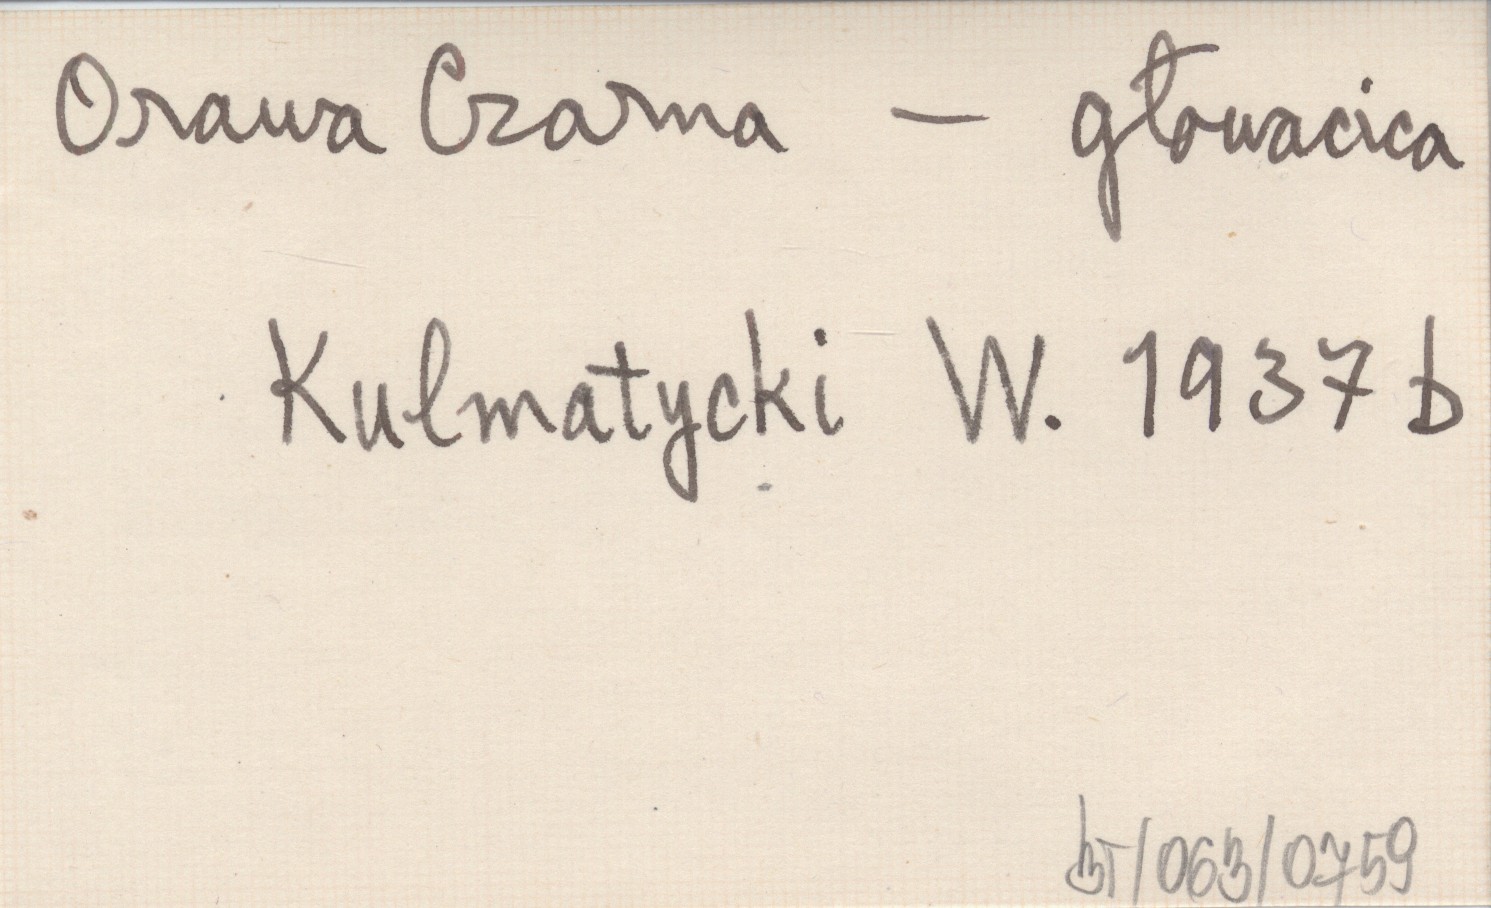 Orawa Czarna — głowacica
Kulmatycki W. 1937 b
BT/063/0759